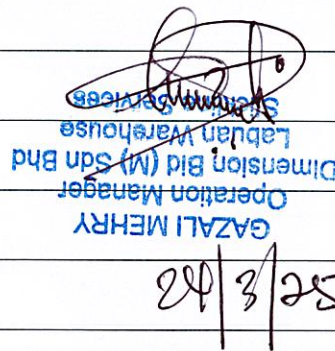 GAZALI MEHRY
Operation Manager
Dimension Bid (M) Sdn Bhd
Labuan Warehouse
Services
24/3/25